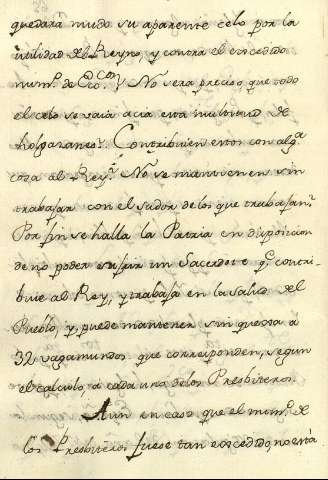 quedará mudo su aparente celo por la
utilidad del Reyno, y contra el excedido
num.º de Ecc.cos? No sera preciso, que todo
el celo se vaia acia esta multitud de
holgazanes? Contribuien estos con alg.a
cosa al Rey? No se mantienen sin
trabajar con el sudor de los que trabajan?
Por fin se halla la Patria en disposicion
de no poder sufrir un Sacerdote q.e contri-
buie al Rey, y trabaja en la salud del
Pueblo, y puede mantener sin quexa a
32 vagamundos que corresponden, segun
el calculo, a cada uno de los Presbiteros.
Aun en caso que el num.º de
los Presbiteros fuese tan excedido, no está